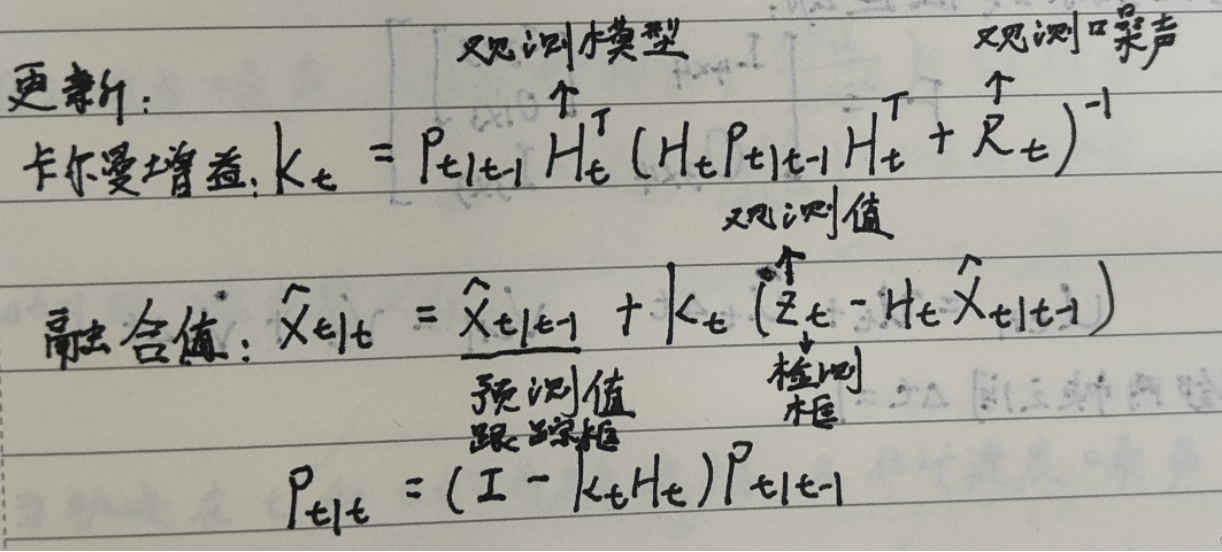 观测模型 观测噪声
更新:
↑ ↑
卡尔曼增益: K_t = P_{t|t-1} H_t^T (H_t P_{t|t-1} H_t^T + R_t)^{-1}
观测值
↑
融合值: X̂_{t|t} = X̂_{t|t-1} + K_t (z_t - H_t X̂_{t|t-1})
↓
预测值 检测
跟踪框 框
P_{t|t} = (I - K_t H_t) P_{t|t-1}